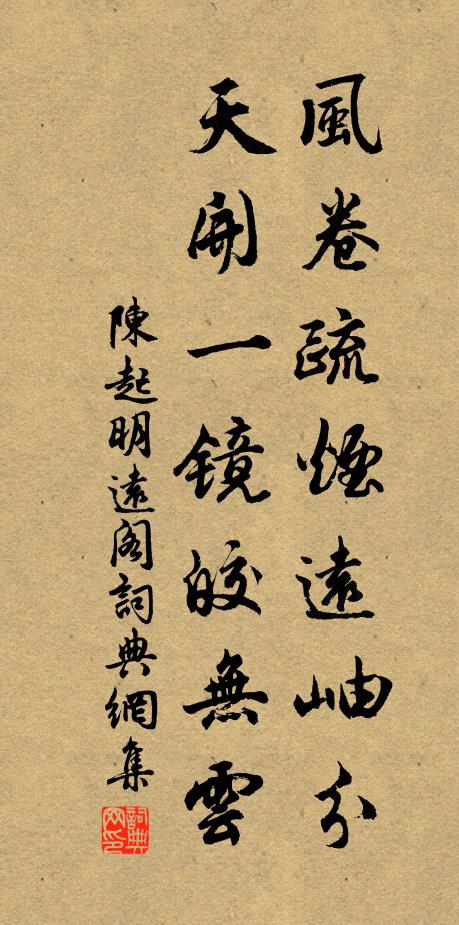 風卷疏煙遠岫分
天開一鏡皎無雲
陳起明遠阁詞典網集
詞典网印